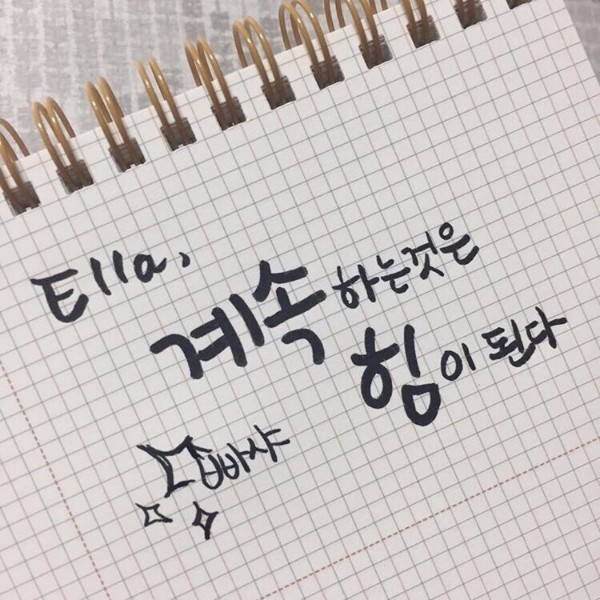 Ella,
계속 하는것은
힘이 된다
빠샤